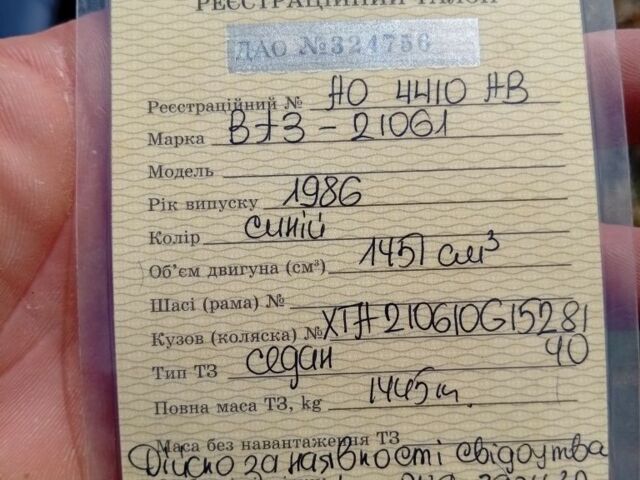 РЕЄСТРАЦІЙНИЙ ТАЛОН
ДАО №324756
Реєстраційний № АО 4410 АВ
Марка ВАЗ - 21061
Модель
Рік випуску 1986
Колір синій
Об'єм двигуна (см³) 1451 см³
Шасі (рама) №
Кузов (коляска) № ХТА210610G15281
40
Тип ТЗ седан
Повна маса ТЗ, kg 1445
Маса без навантаження ТЗ
Дійсно за наявності свідоутва